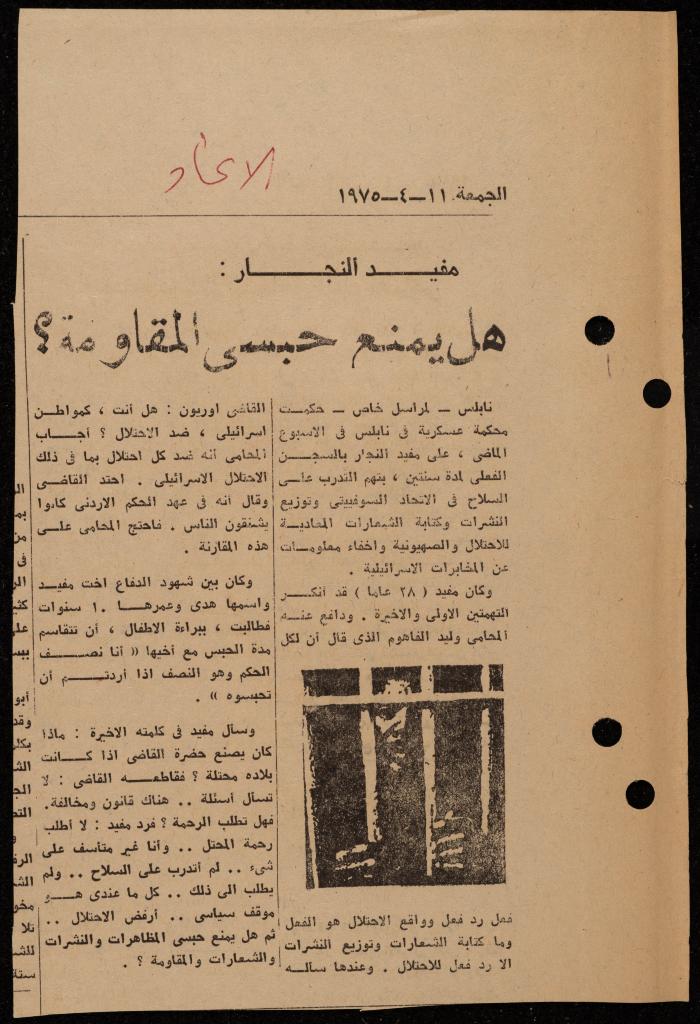 الاتحاد
الجمعة ١١-٤-١٩٧٥
مفيد النجار :
هل يمنع حبسى المقاومة ؟
نابلس - لمراسل خاص - حكمت
محكمة عسكرية فى نابلس فى الاسبوع
الماضى ، على مفيد النجار بالسجن
الفعلى لمدة سنتين ، بتهم التدرب على
السلاح فى الاتحاد السوفييتى وتوزيع
النشرات وكتابة الشعارات المعادية
للاحتلال والصهيونية واخفاء معلومات
عن المخابرات الاسرائيلية .
وكان مفيد ( ٢٨ عاما ) قد أنكر
التهمتين الاولى والاخيرة . ودافع عنه
المحامى وليد الفاهوم الذى قال أن لكل
فعل رد فعل وواقع الاحتلال هو الفعل
وما كتابة الشعارات وتوزيع النشرات
الا رد فعل للاحتلال . وعندها ساله
القاضى اوريون : هل أنت ، كمواطن
اسرائيلى ، ضد الاحتلال ؟ أجاب
المحامى أنه ضد كل احتلال بما فى ذلك
الاحتلال الاسرائيلى . احتد القاضى
وقال أنه فى عهد الحكم الاردنى كانوا
يشنقون الناس . فاحتج المحامى على
هذه المقارنة .
وكان بين شهود الدفاع اخت مفيد
واسمها هدى وعمرها ١٠ سنوات
فطالبت ، ببراءة الاطفال ، أن تتقاسم
مدة الحبس مع أخيها « أنا نصف
الحكم وهو النصف اذا أردتم أن
تحبسوه » .
وسأل مفيد فى كلمته الاخيرة : ماذا
كان يصنع حضرة القاضى اذا كانت
بلاده محتلة ؟ فقاطعه القاضى : لا
تسأل أسئلة .. هناك قانون ومخالفة.
فهل تطلب الرحمة ؟ فرد مفيد : لا أطلب
رحمة المحتل .. وأنا غير متأسف على
شىء .. لم أتدرب على السلاح .. ولم
يطلب الى ذلك .. كل ما عندى هو
موقف سياسى .. أرفض الاحتلال ..
ثم هل يمنع حبسى المظاهرات والنشرات
والشعارات والمقاومة ؟ .